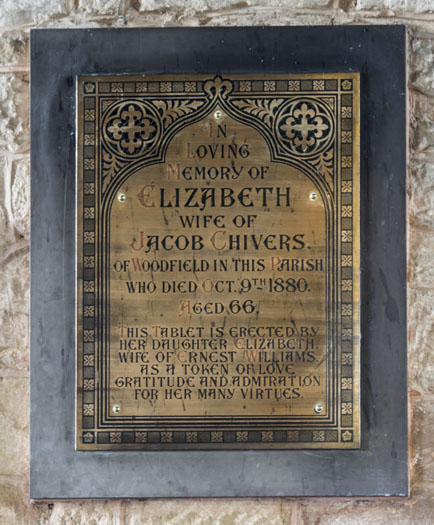 IN
LOVING
MEMORY OF
ELIZABETH
WIFE OF
JACOB CHIVERS.
OF WOODFIELD IN THIS PARISH
WHO DIED OCT. 9TH 1880.
AGED 66.
THIS TABLET IS ERECTED BY
HER DAUGHTER ELIZABETH,
WIFE OF ERNEST WILLIAMS,
AS A TOKEN OF LOVE
GRATITUDE AND ADMIRATION
FOR HER MANY VIRTUES.